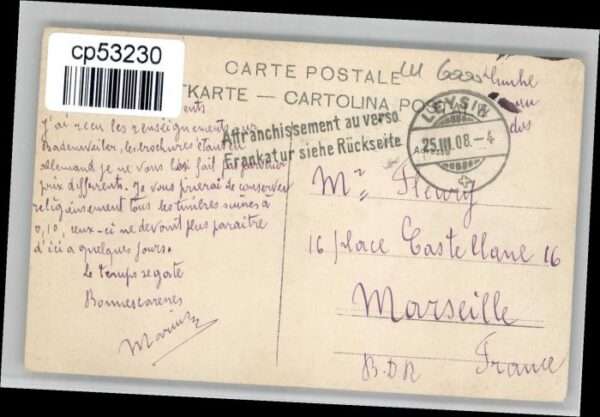 cp53230
CARTE POSTALE
TKARTE — CARTOLINA POS
J'ai reçu les renseignements sur
Badenweiler, les brochures étant en
allemand je ne vous fait
prix différents. Je vous prierai de conserver
religieusement tous les timbres suisses à
0,10, ceux-ci ne devant plus paraître
d'ici à quelques jours.
Le temps se gâte
Bonnes
Marius
Affranchissement au verso
Frankatur siehe Rückseite
LEYSIN
25.III.08.-4
Mr Fleury
16 place Castellane 16
Marseille
B.D.R
France